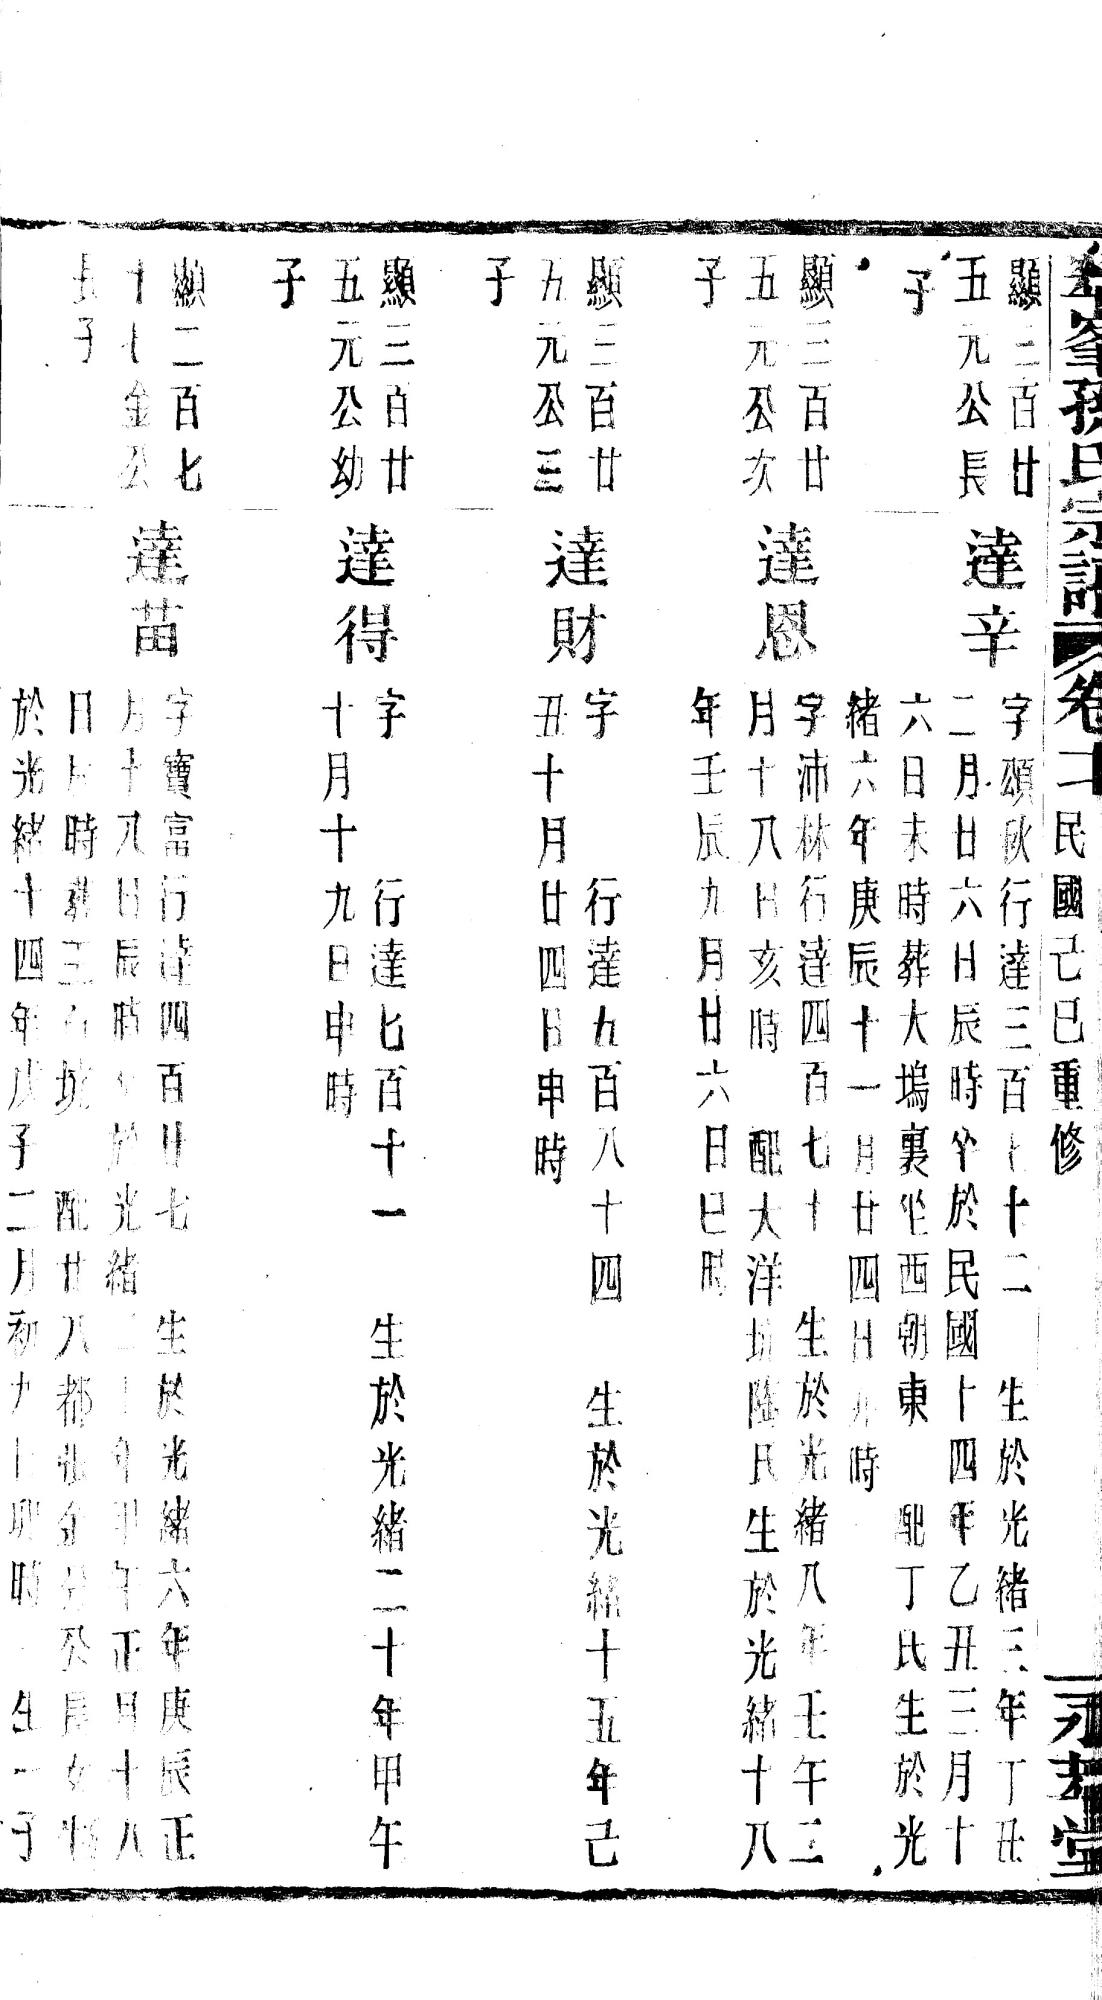 峯孫氏宗譜 卷二 民國己巳重修 堂
顯三百廿
五元公長
子
達辛
字頌秋行達三百七十二 生於光緒三年丁丑
二月廿六日辰時卒於民國十四年乙丑三月十
六日未時葬大塢裏坐西朝東 配丁氏生於光
緒六年庚辰十一月廿四日 時
顯三百廿
五元公次
子
達恩
字沛林行達四百七十 生於光緒八年壬午二
月十八日亥時 配大洋坑陸氏生於光緒十八
年壬辰九月廿六日巳時
顯三百廿
五元公三
子
達財
字 行達五百八十四 生於光緒十五年己
丑十月廿四日申時
顯三百廿
五元公幼
子
達得
字 行達七百十一 生於光緒二十年甲午
十月十九日申時
顯二百七
十七金公
長子
達苗
字寶富行達四百廿七 生於光緒六年庚辰正
月十八日辰時卒於光緒二十年甲午正月十八
日 時葬三 坑 配廿八都張金 公長女
於光緒十四年戊子二月初九日 時 生一子